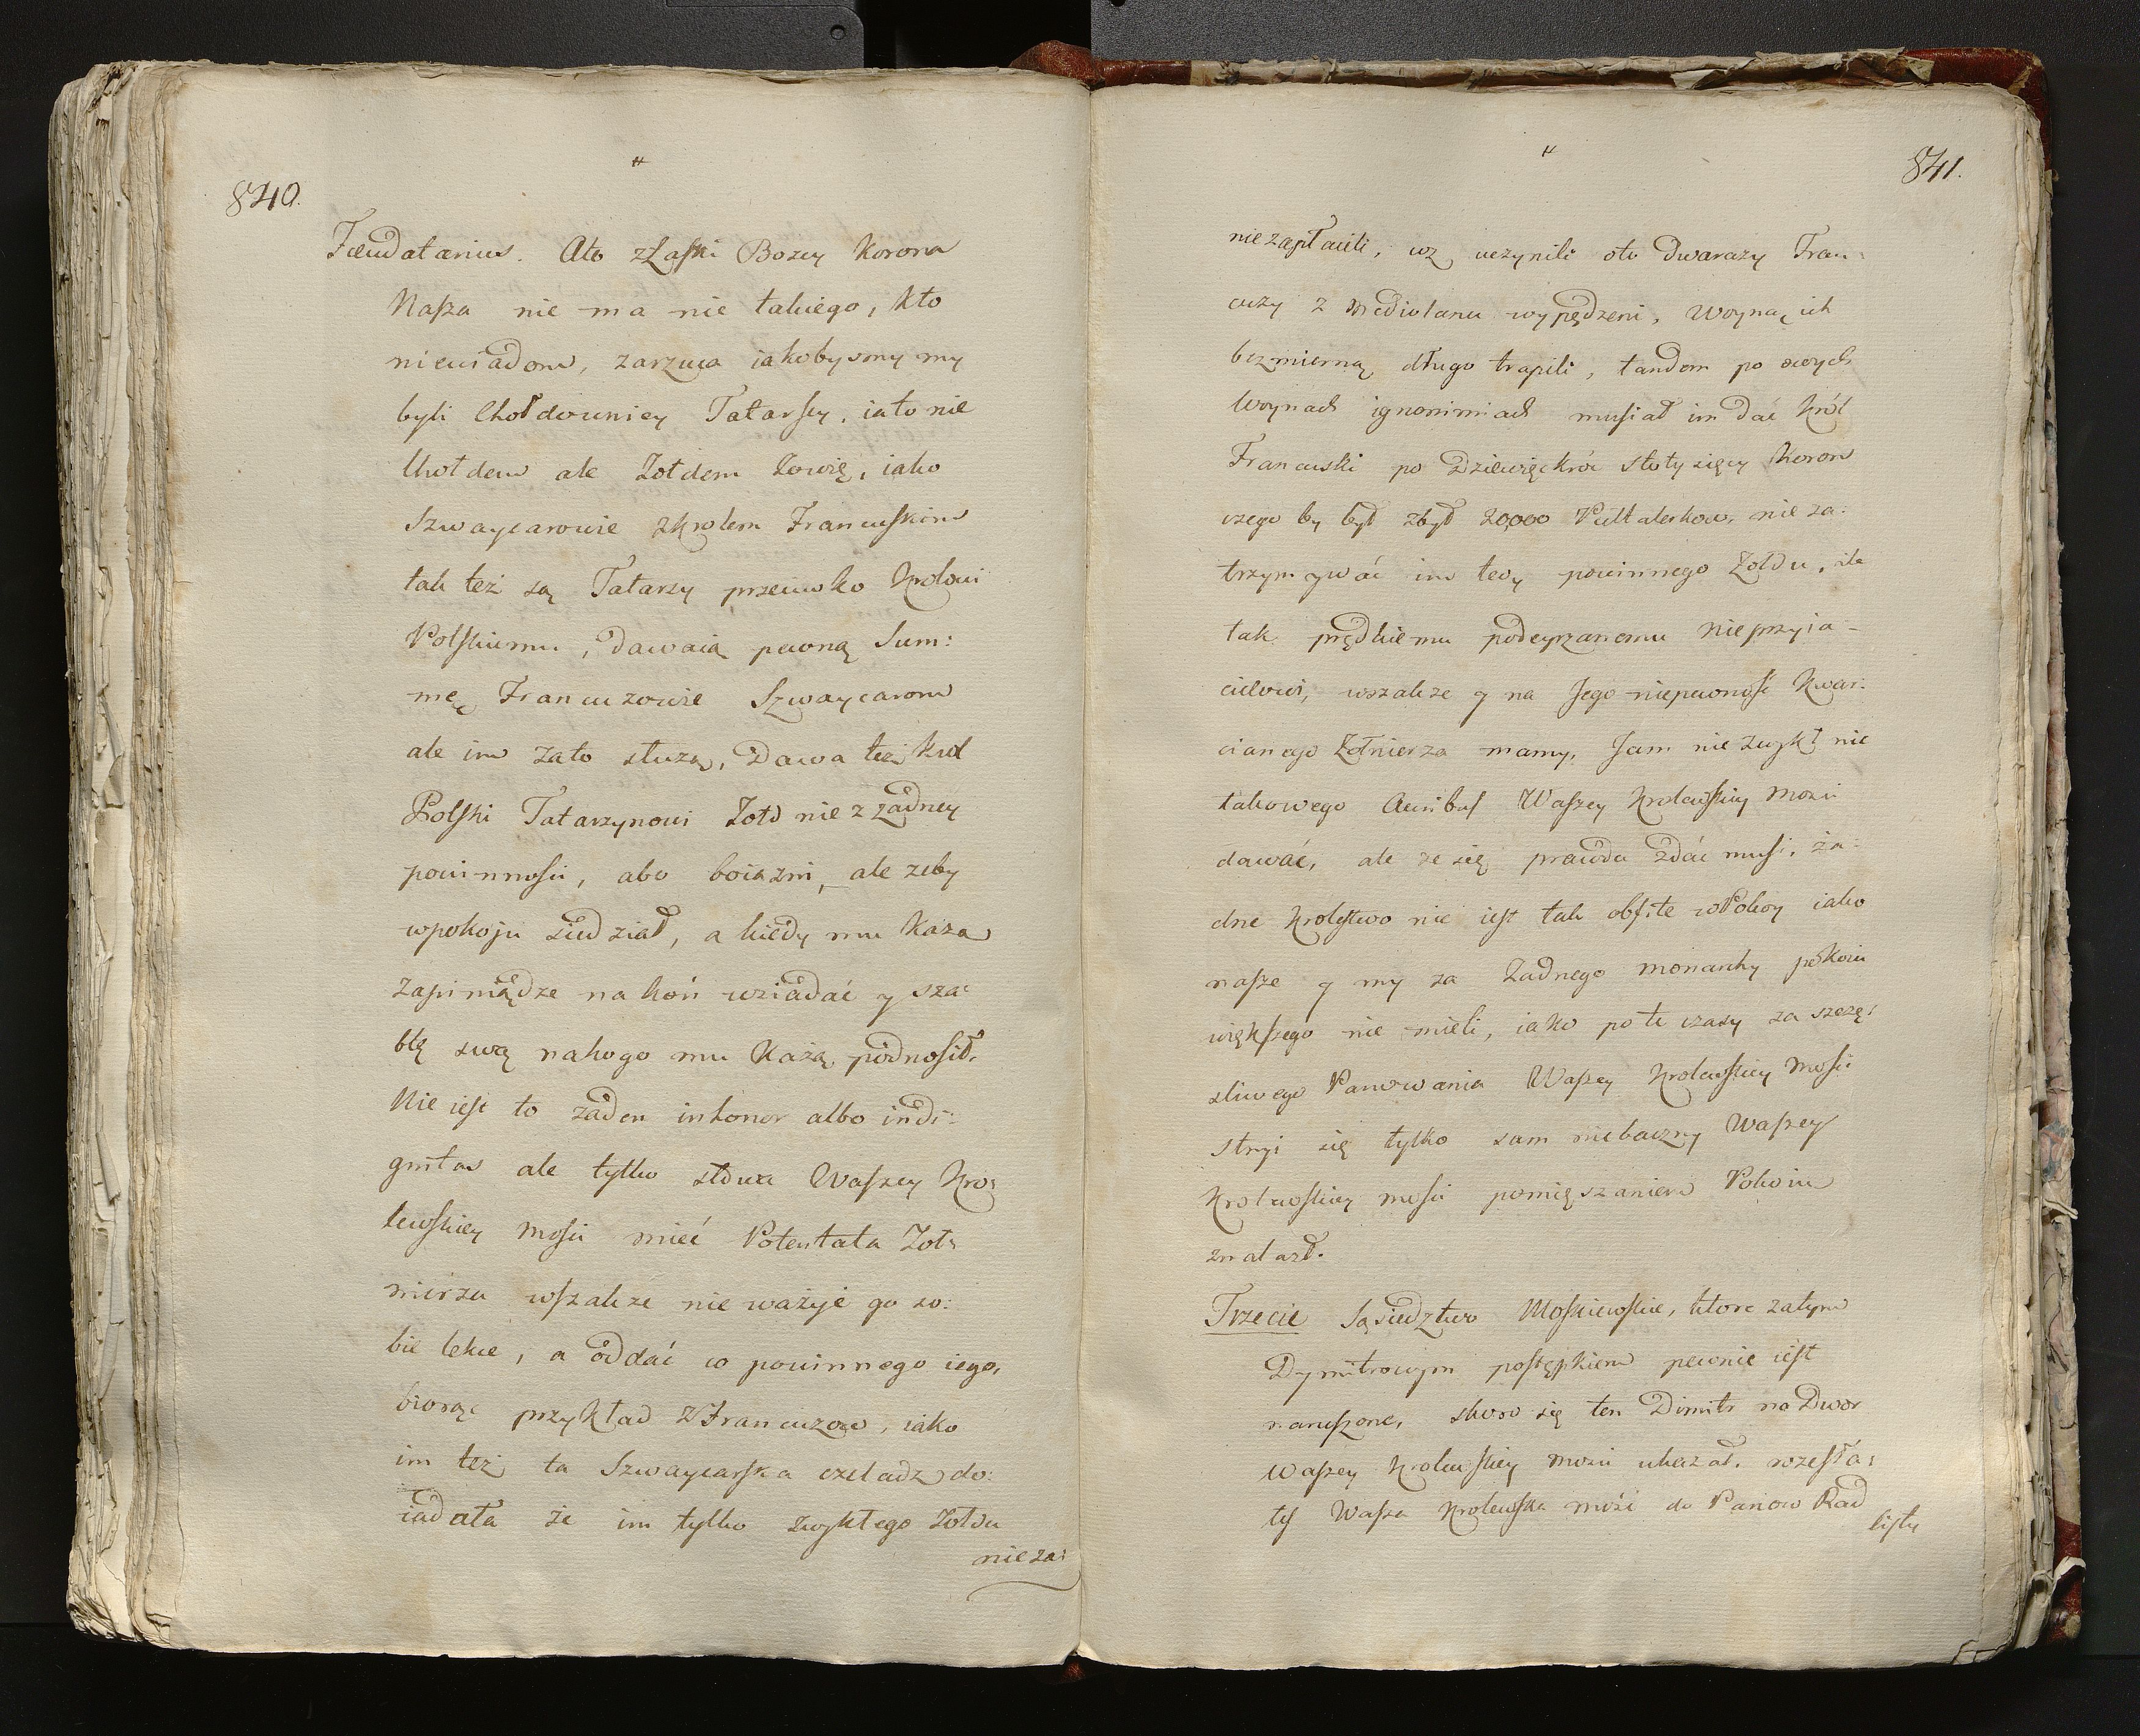 840.
Feudatarius. Ale zŁaski Bozey Korona
Nasza nie ma nic takiego, kto
niewiadom, zarzuca iakobysmy my
byli Chołdownicy Tatarscy, iato nie
Chołdem ale Zołdem Zowię, iako
Szwaycarowie zkrolem Francuskim
tak też są Tatarzy przeciwko Krolowi
Polskiemu, Dawaią pewną Sum:
mę Francuzowie Szwaycarom
ale im zato służą, Dawa też krol
Polski Tatarzynowi Zołd nie z żadney
powinnosci, abo boiazni, ale zeby
wpokoju siedział, a kiedy mu Każą
zapiniądze na koń wsiadać y sza:
blę swą nakogo mu Każą podnosił.
Nie iest to żaden inhonor albo indi:
gnitas ale tylko słowa Waszey Kro:
lewskiey Mosci mieć Potentata Zoł:
nierza wszakze nie ważyć go so:
bie lekce, a oddać co powinnego iego,
biorąc przykład zFrancuzow, iako
im też ta Szwaycarska czeladz do:
iadała że im tylko zwykłego Zołdu
nieza:
841.
niezapłacili, coż uczynili oto Dwarazy Fran:
cuzy z Mediolanu wypędzeni, Woyną ich
bezmierną długo trapili, tandem po owych
Woynach ignominiach musiał im Dać Król
Francuski po Dziewięckroć stotysięcy Koron
czego by był zbył 20,000 nie za:
trzymywać im tedy powinnego Zołdu, ile
tak prędkiemu podeyrzanemu nieprzyia-
cielowi, wszakze y na Jego niepewność Kwar:
cianego Zołnierza mamy, Jam nie zwykł nic
takowego Auribus Waszey Krolewskiey Mosci
dawać, ale ze się prawda zdać musi, ża:
dne Krolestwo nie iest tak obfite wPokoy iako
nasze y my za Zadnego monarchy pokoiu
większego nie mieli, iako po te czasy za szczę:
sliwego Panowania Waszey Krolewskiey Mosci
stryi się tylko sam niebaczny Waszey
Krolewskiey Mosci pomięszaniem Pokoiu
znalazł.
Trzecie Sąsiedztwo Moskiewskie, ktore zatym
Dymitrowym postępkiem pewnie iest
naruszone, skoro się ten Dimitr na Dwor
Waszey Krolewskiey Mosci ukazał. rozesła:
łes Wasza Krolewska Mość do Panow Rad
listy